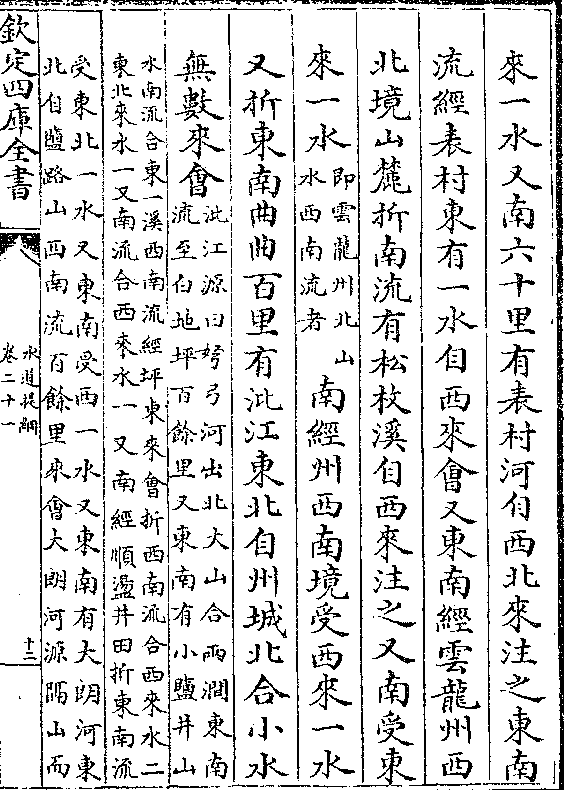 來一水又南六十里有表村河自西北來注之東南
流經表村東有一水自西來會又東南經雲龍州西
北境山麓折南流有松枚溪自西來注之又南受東
來一水
即雲龍州北山
水西南流者
南經州西南境受西來一水
又折東南曲曲百里有沘江東北自州城北合小水
無數來會
沘江源曰弩弓河出北大山合兩澗東南
流至白地坪百餘里又東南有小鹽井山
水南流合東一溪西南流經坪東來會折西南流合西來水二
東北來水一又南流合西來水一又南經順盪井田折東南流
受東北一水又東南受西一水又東南有大朗河東
北自鹽路山西南流百餘里來會大朗河源隔山而
欽定四庫全書
水道提綱
卷二十一
十二